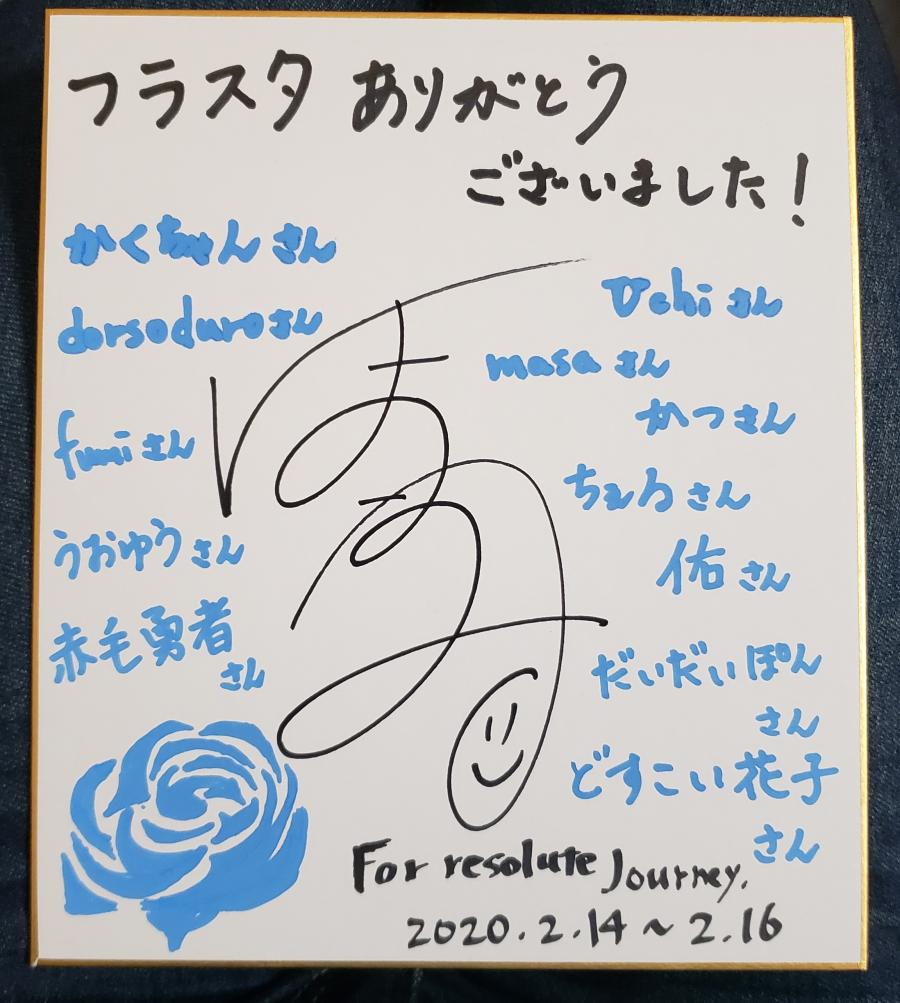 フラスタ ありがとう
ございました！
かくちゃんさん
dorsoduroさん
fumiさん
うおゆうさん
赤毛勇者
さん
Uchiさん
masaさん
かつさん
ちぇるさん
佑さん
だいだいぽん
さん
どすこい花子
さん
For resolute Journey.
2020.2.14～2.16